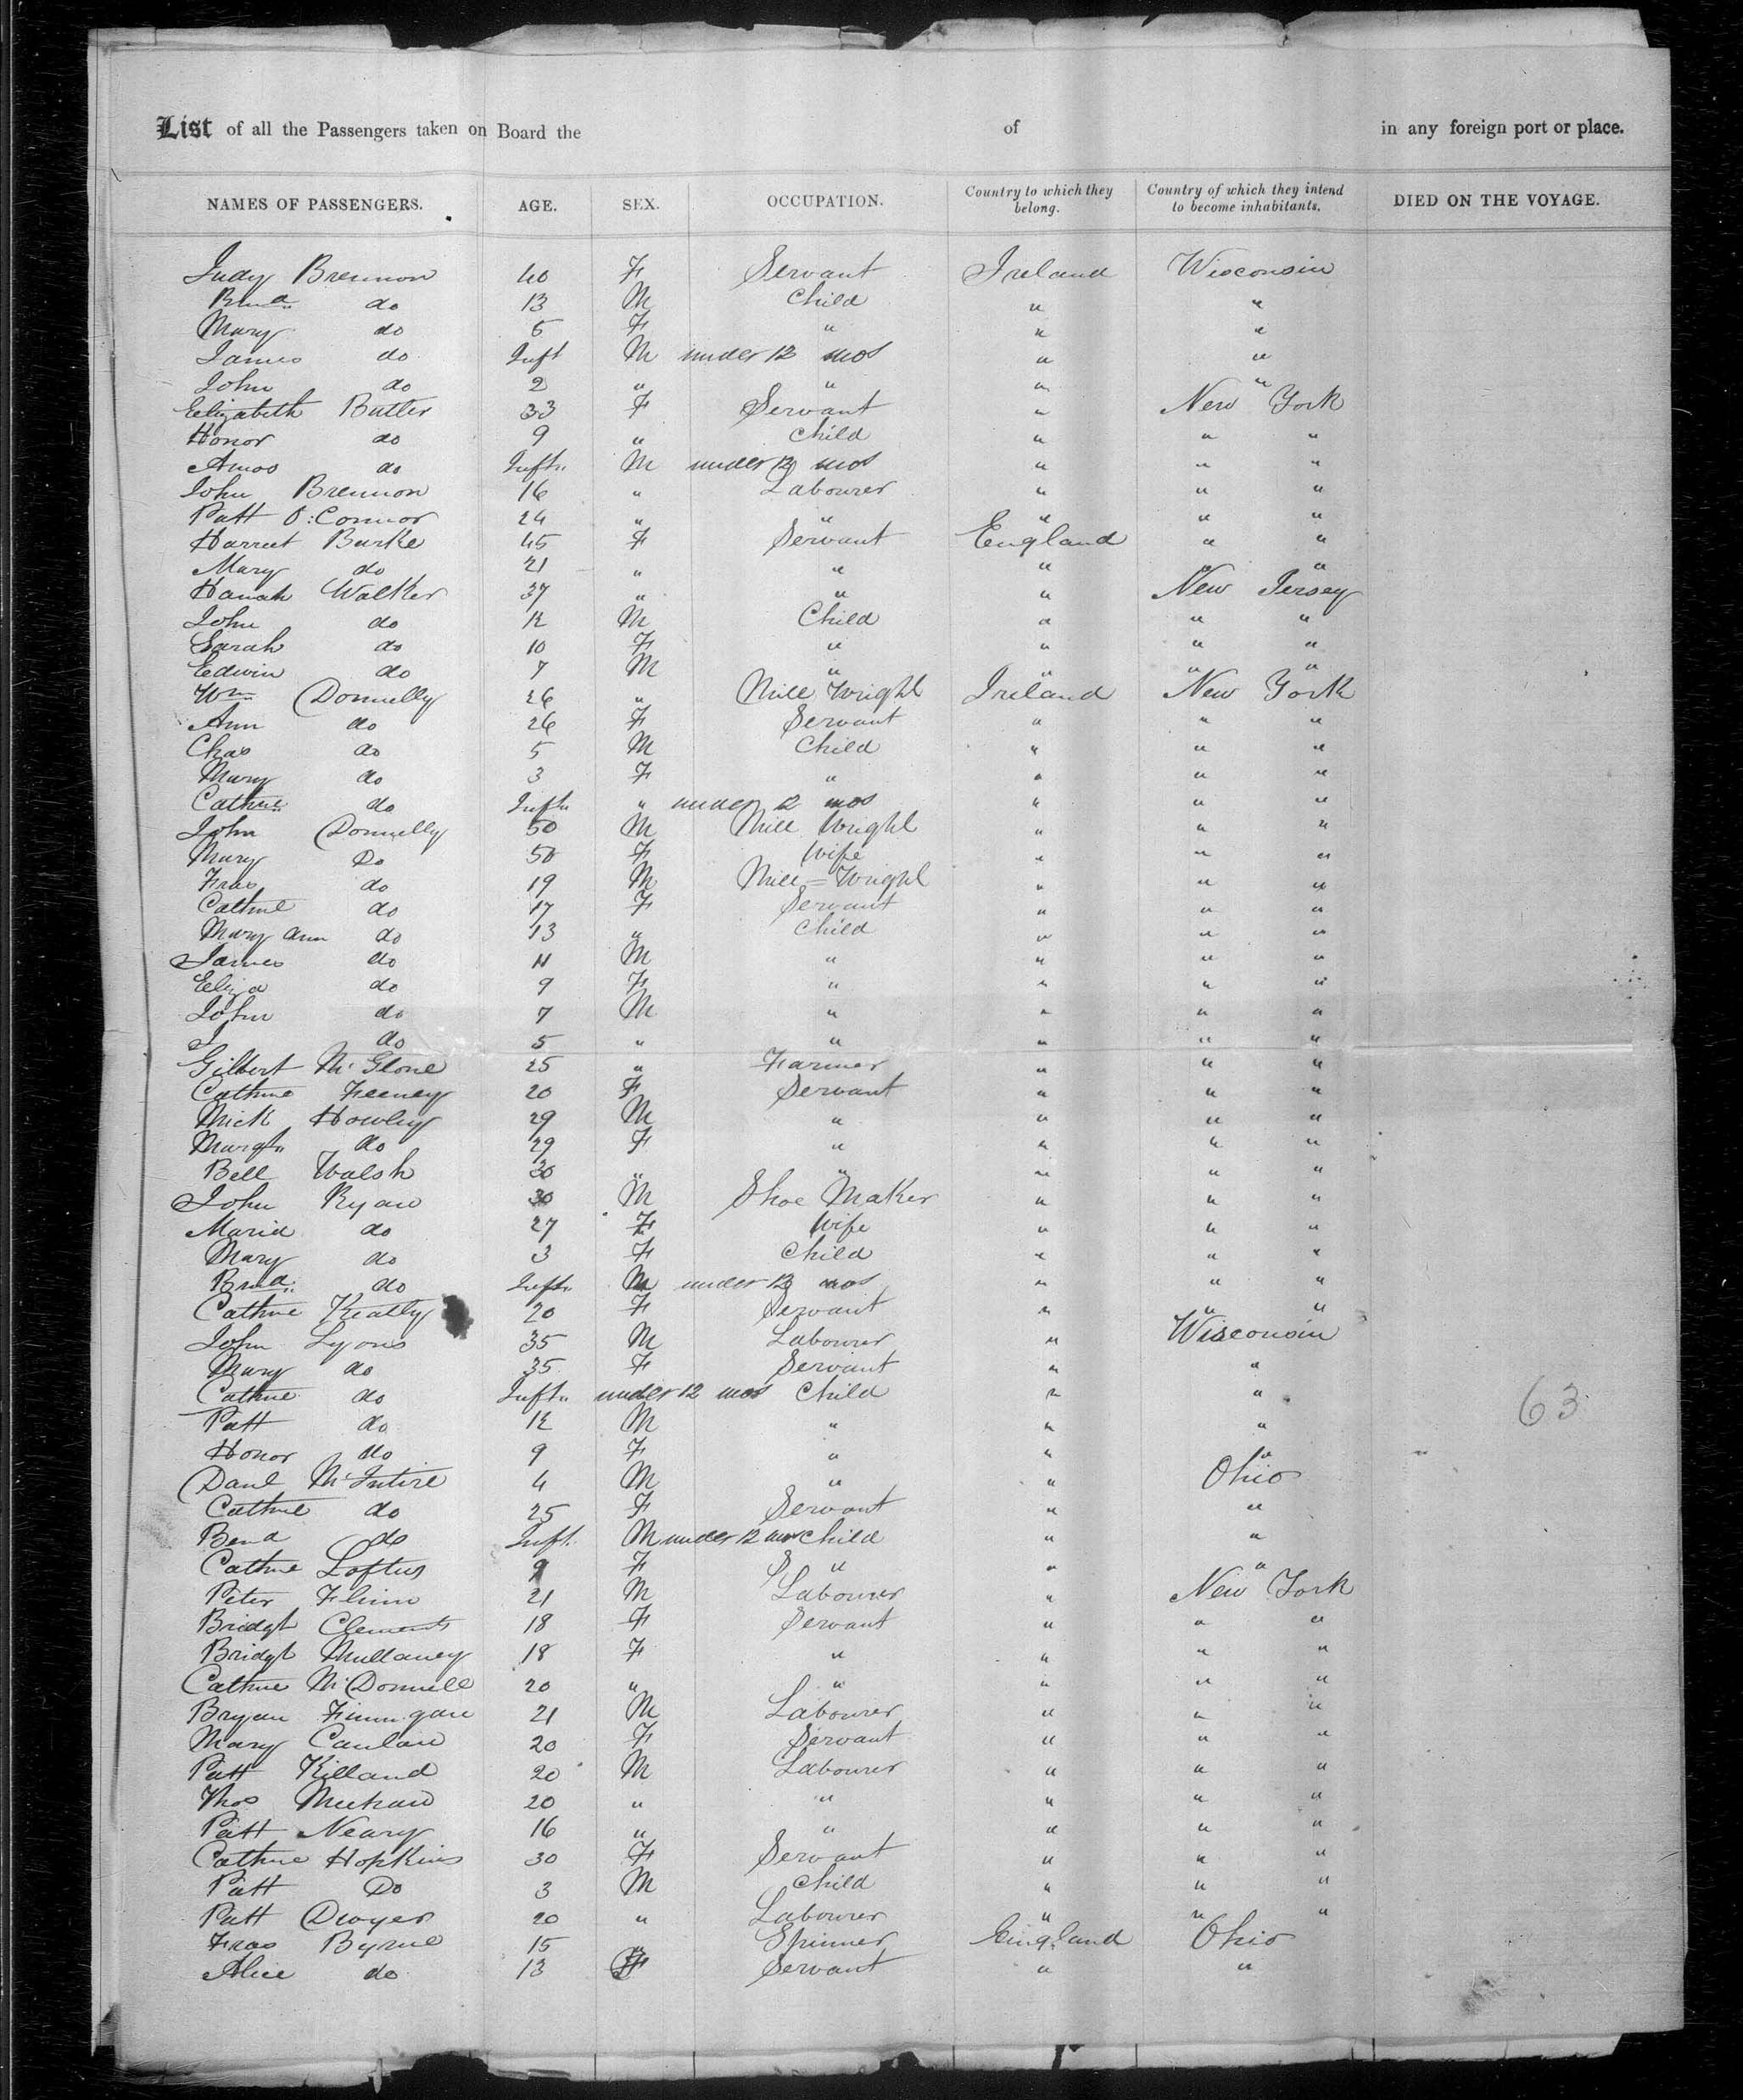 List of all the Passengers taken on Board the of in any foreign port or place.
NAMES OF PASSENGERS. AGE. SEX. OCCUPATION. Country to which they belong. Country of which they intend to become inhabitants. DIED ON THE VOYAGE.
Judy Brennon 40 F Servant Ireland Wisconsin
do 13 M Child " "
Mary do 5 F " " "
James do Inft M under 12 mos " "
John do 2 " " " "
Elizabeth Butler 33 F Servant " New York
Honor do 9 " Child " " "
Amos do Inft. M under 12 mos " " "
John Brennon 16 " Labourer " " "
Patt O:Connor 24 " " " " "
Harriet Burke 45 F Servant England " "
Mary do 21 " " " " "
Hanah Walker 37 " " " New Jersey
John do 12 M Child " " "
Sarah do 10 F " " " "
Edwin do 7 M " " " "
Wm Donnelly 26 " Mill Wright Ireland New York
Ann do 26 F Servant " " "
Chas do 5 M Child " " "
Mary do 3 F " " " "
Cathne do Inft. " under 12 mos " " "
John Donnelly 50 M Mill Wright " " "
Mary Do 50 F Wife " " "
Fras do 19 M Mill=Wright " " "
Cathne do 17 F Servant " " "
Mary Ann do 13 " Child " " "
James do 11 M " " " "
Eliza do 9 F " " " "
John do 7 M " " " "
J do 5 " " " " "
Gilbert McGlone 25 " Farmer " " "
Cathne Feeney 20 F Servant " " "
Mick Howley 29 M " " " "
Margt. do 29 F " " " "
Bell Walsh 30 " " " " "
John Ryan 30 M Shoe Maker " " "
Maria do 27 F Wife " " "
Mary do 3 F Child " " "
do Inft. M under 12 mos " " "
Cathne Keatly 20 F Servant " " "
John Lyons 35 M Labourer " Wisconsin
Mary do 35 F Servant " "
Cathne do Inft. under 12 mos Child " "
Patt do 12 M " " " 63
Honor do 9 F " " "
Danl McIntire 4 M " " Ohio
Cathne do 25 F Servant " "
do Inft. M under 12 mos Child " "
Cathne Loftus 9 F " " "
Peter Flinn 21 M Labourer " New York
Bridgt Clements 18 F Servant " " "
Bridgt Mullaney 18 F " " " "
Cathne McDonnell 20 " " " " "
Bryan Finnigan 21 M Labourer " " "
Mary Canlan 20 F Servant " " "
Patt Killand 20 M Labourer " " "
Thos Meehan 20 " " " " "
Patt Neary 16 " " " " "
Cathne Hopkins 30 F Servant " " "
Patt Do 3 M Child " " "
Patt Dwyer 20 " Labourer " " "
Fras Byrne 15 " Spinner England Ohio
Alice do 13 F Servant " "